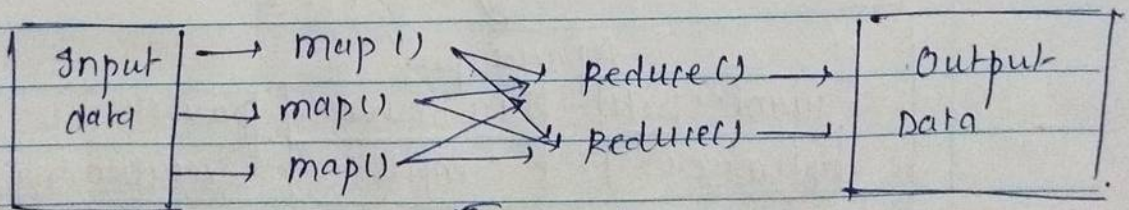 Input data
map()
map()
map()
Reduce()
Reduce()
Output Data